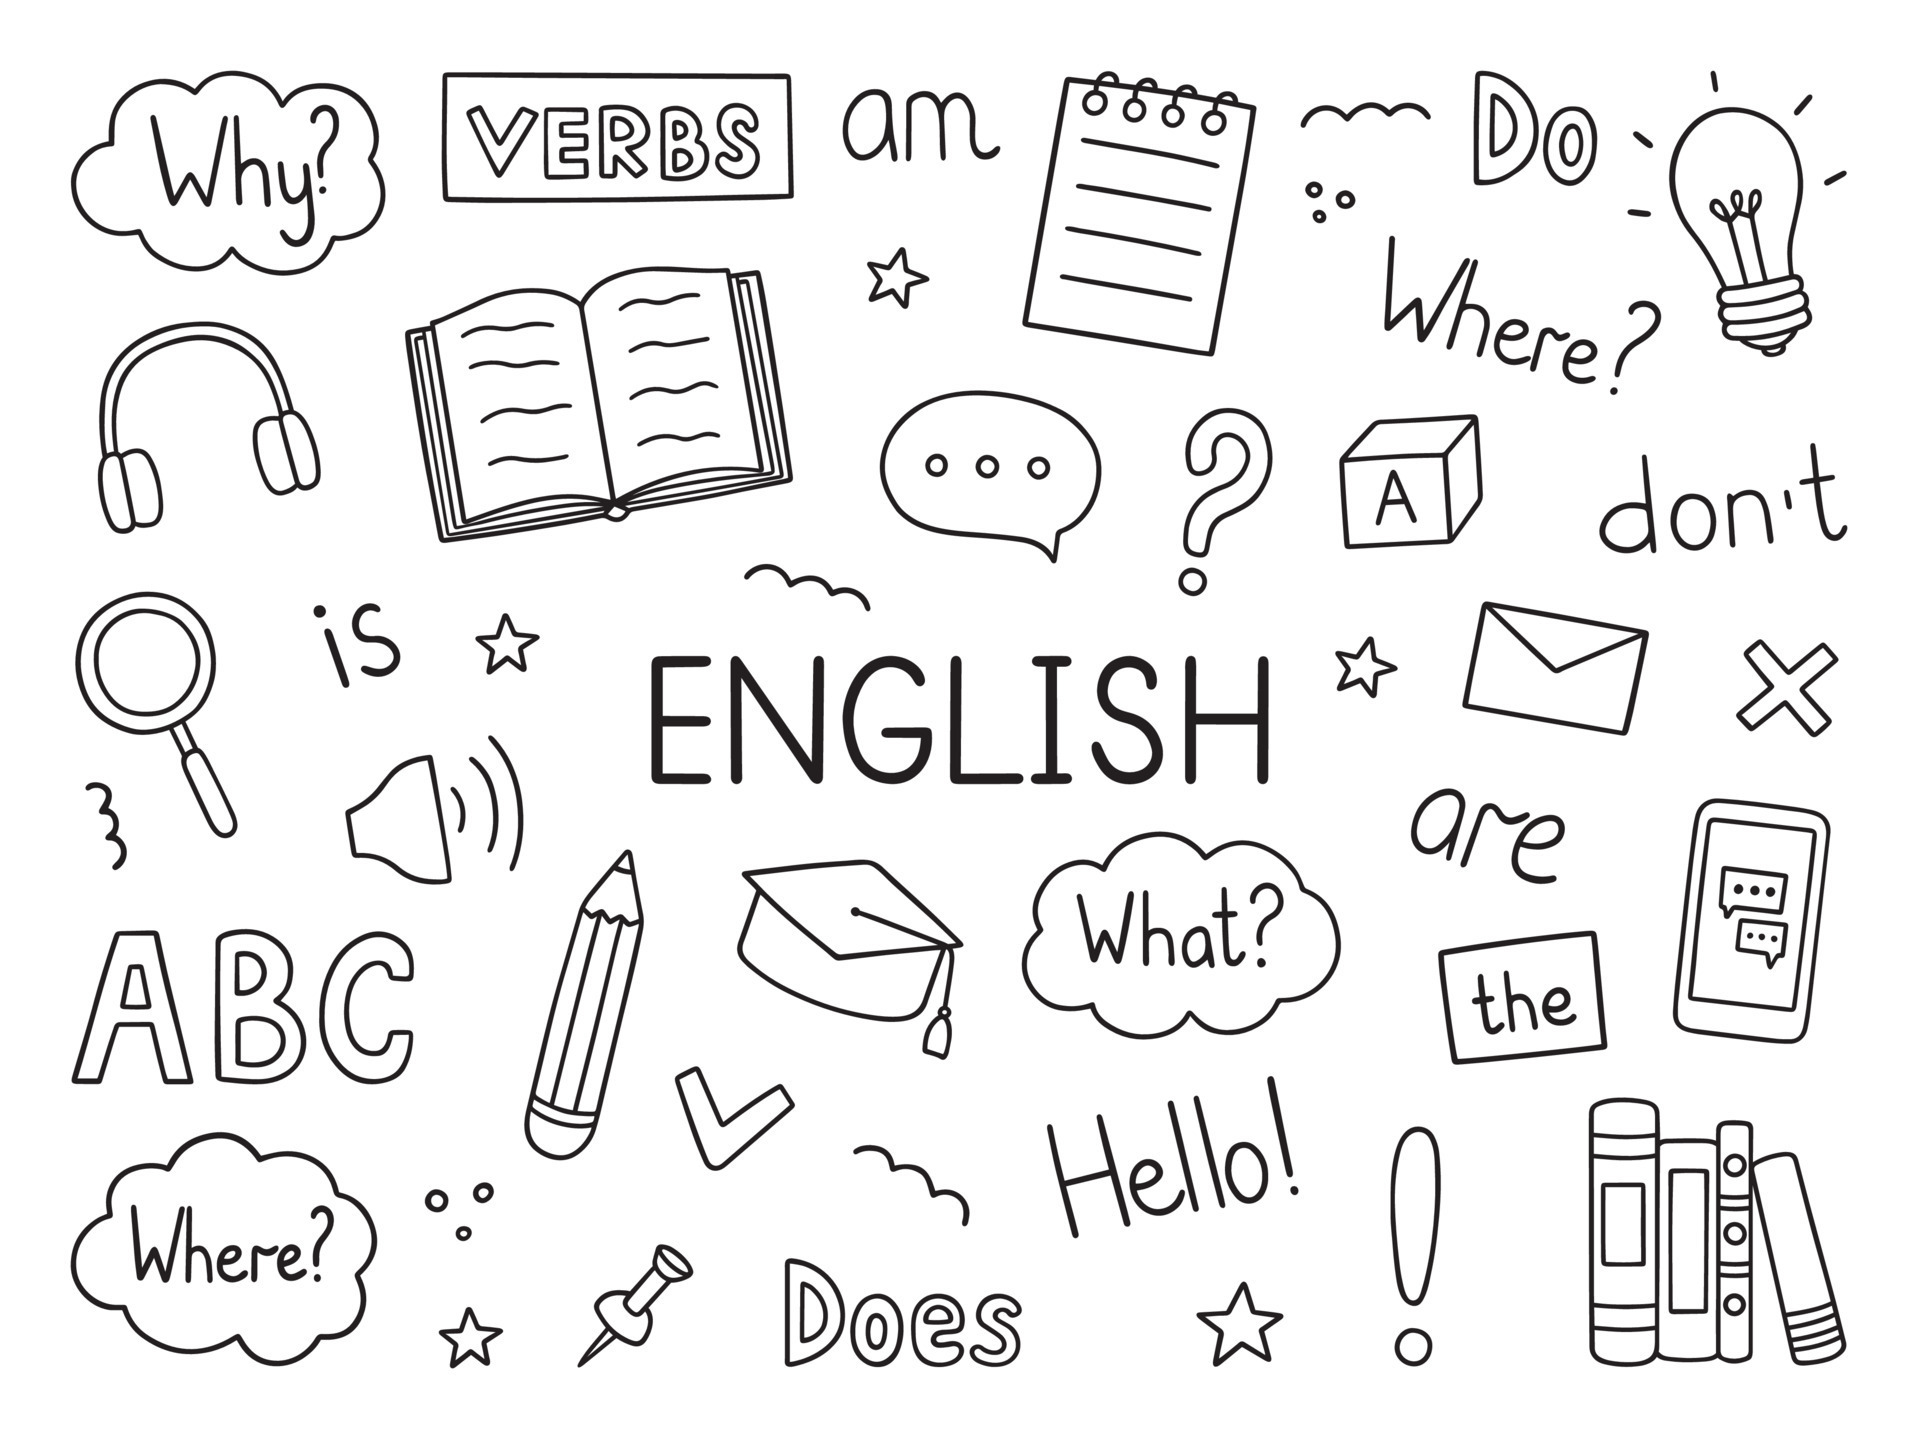 Why?
VERBS
am
Do
Where?
A
don't
is
ENGLISH
are
What?
the
ABC
Hello!
Where?
Does